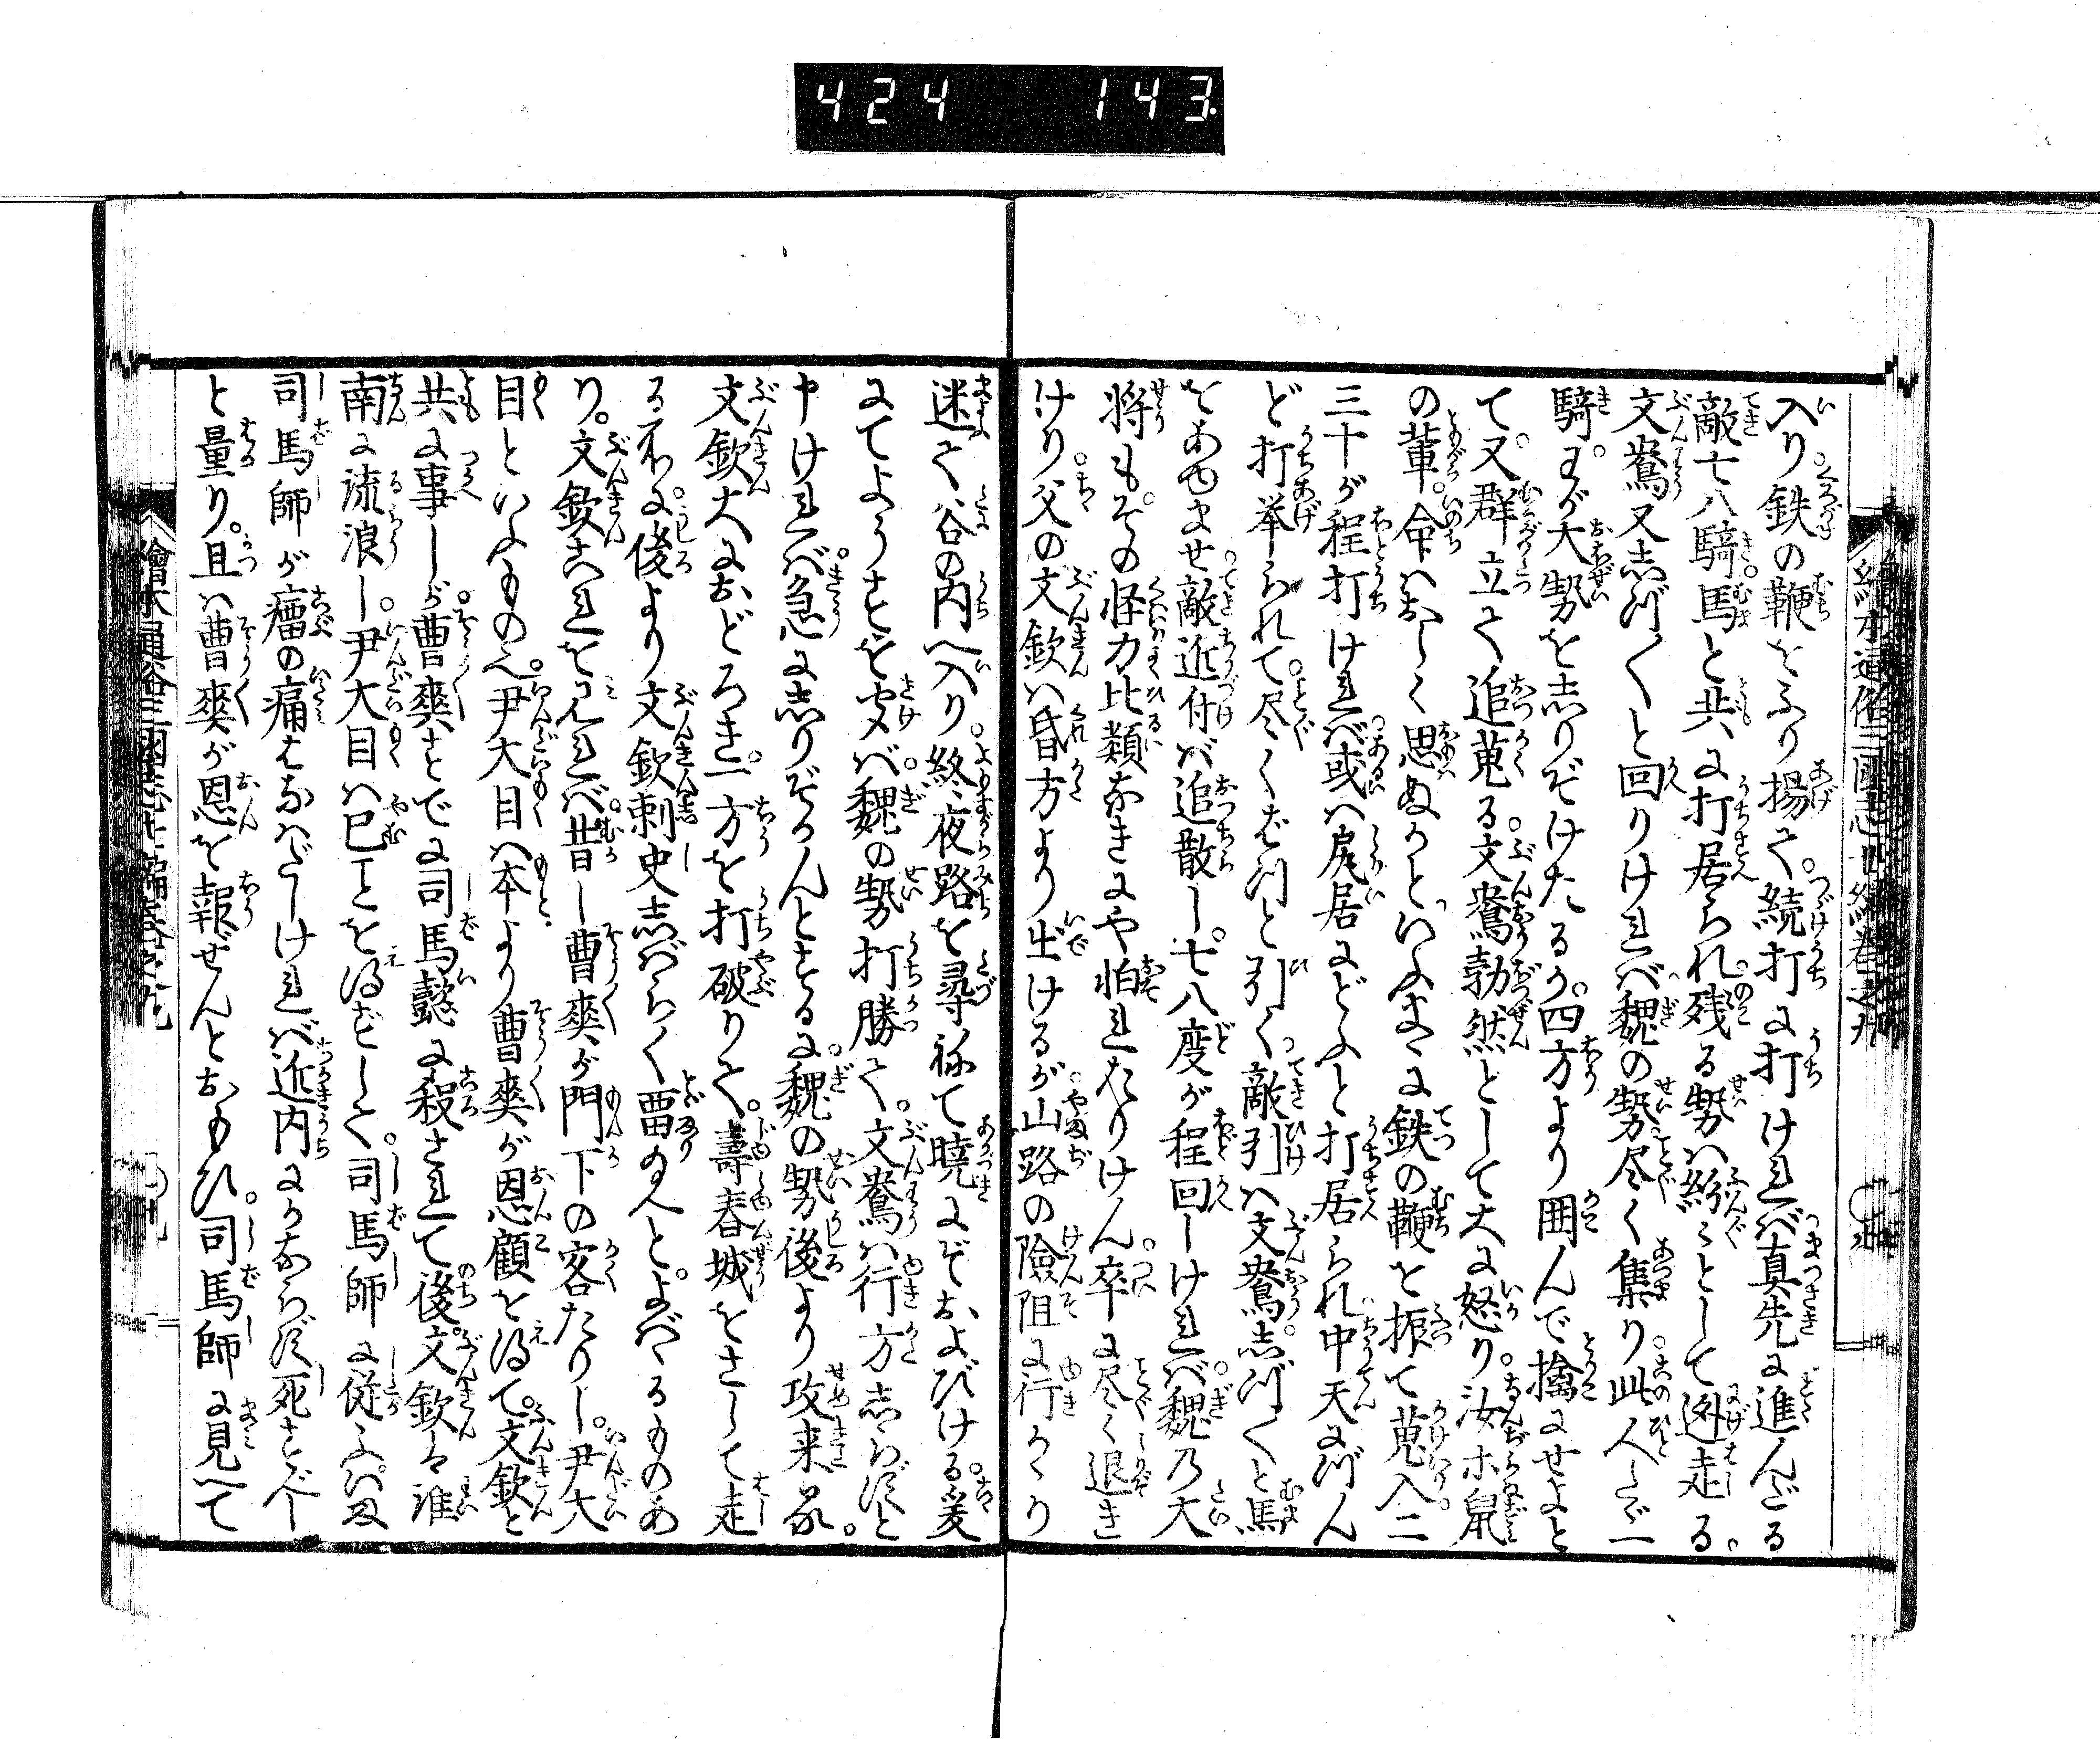 424 143
入り鉄の鞭をふり揚て。続打に打ければ真先に進んだる
敵七八騎馬と共に打居られ。残る勢は紛々として迯走る。
文鴦又志づ〱と回りければ魏の勢尽く集り。此人たゞ一
騎。わが大勢を志りぞけたるか。四方より囲んで擒にせよと
て。又群立て追蒐る。文鴦勃然として大に怒り。汝ホ鼠
の輩。命はおしく思ぬかといふまゝに鉄の鞭を振て蒐入。二
三十が程打ければ。或は尻居にどふと打居られ中天にづん
ど打挙られて。尽くぱつと引く。敵引は文鴦。志づ〱と馬
をあゆませ敵近付ば追散し。七八度が程回しければ。魏の大
将も。その怪力比類なきにや怕れたりけん。卒に尽く退き
けり。父の文欽は昏方より出けるが。山路の險阻に行かゝり
迷て谷の内へ入り。終夜路を尋ねて曉にぞおよびける。爰
にてようすを聞ば。魏の勢打勝て。文鴦は行方志らずと
申ければ。急に志りぞかんとする に。魏の勢後より攻来る。
文欽大におどろき。一方を打破りて。壽春城をさして走
る所に。後より文欽刺史志ばらく畱めんと。よばゝるものあ
り。文欽これをみれば。昔し曹爽が門下の客たりし。尹大
目といふもの也。尹大目は本より曹爽が恩顧を得て。文欽と
共に事しが。曹爽すでに司馬懿に殺されて後。文欽は淮
南に流浪し。尹大目は已ことを得ずして。司馬師に従ふ。いま
司馬師が瘤の痛はなはだしければ近内にかならず死すべし
と量り。且は曹爽が恩を報ぜんとおもひ。司馬師に見へて
繪本通俗三國志七編卷之九